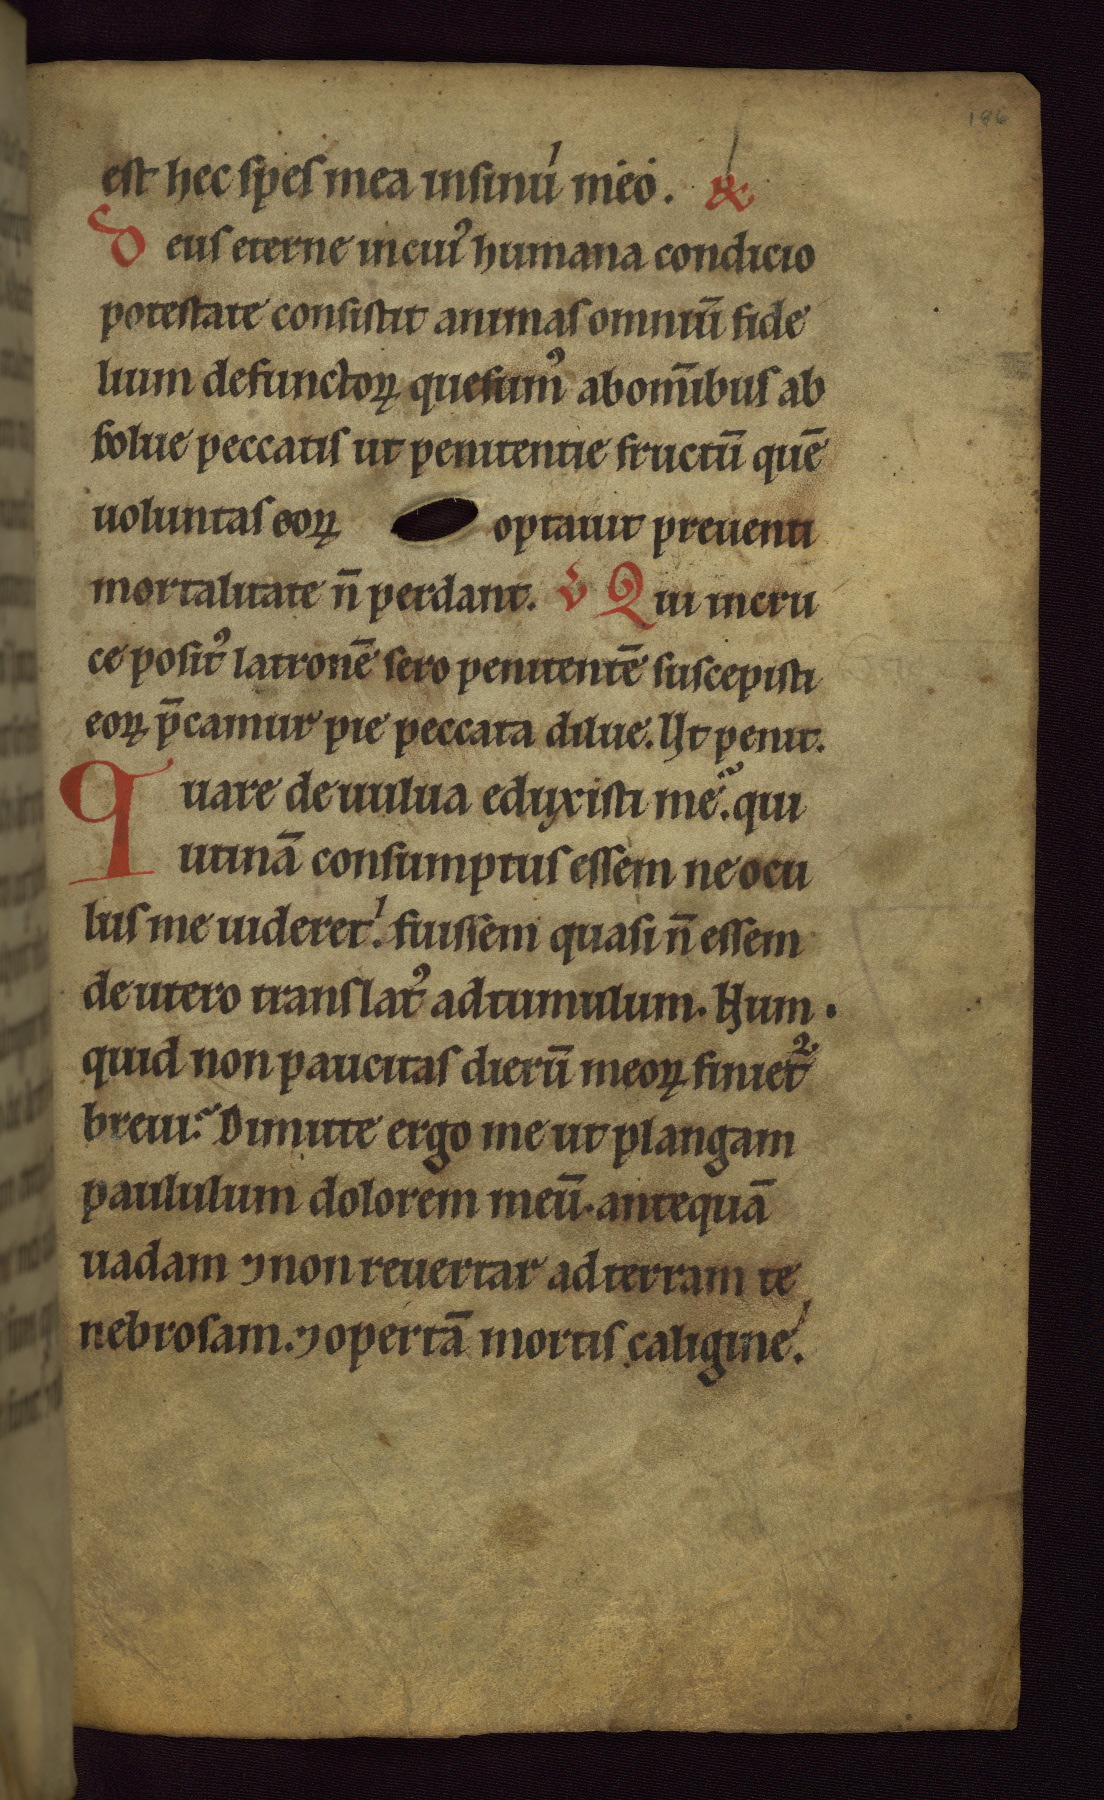 186
est hec spes mea in sinu meo. R
Deus eterne in cuiꝰ humana condicio
potestate consistit animas omniū fide
lium defunctoꝝ quesumꝰ ab om̄ibus ab
solue peccatis ut penitentie fructū quē
uoluntas eoꝝ optauit preuenti
mortalitate n̄ perdant. V Qui in cru
ce positꝰ latronē sero penitentē suscepisti
eoꝝ p̄camur pie peccata dilue. Ut penit.
Quare de uulua eduxisti me. qui
utinā consumptus essem ne ocu
lus me uideret. fuissem quasi n̄ essem
de utero translatꝰ ad tumulum. Num
quid non paucitas dierū meoꝝ finiet᷑
breui. Dimitte ergo me ut plangam
paululum dolorem meū. antequā
uadam ⁊ non reuertar ad terram te
nebrosam. ⁊ opertā mortis caligine.